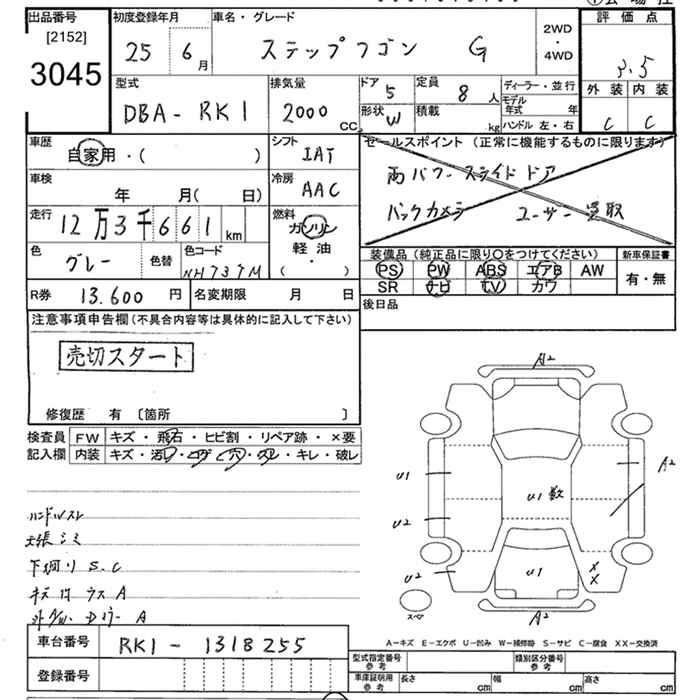 出品番号
[2152]
3045
初度登録年月
25 6月
車名・グレード
ステップワゴン G
2WD
・
4WD
評価点
3.5
外装 内装
C C
型式
DBA-RK1
排気量
2000 CC
ドア
5
形状
W
定員
8人
積載
kg
ディーラー・並行
モデル年式 年
ハンドル 左・右
車歴
自家用・( )
シフト
IAT
セールスポイント (正常に機能するものに限ります)
両パワースライドドア
バックカメラ ユーザー買取
車検
年 月( 日)
冷房
AAC
走行
12万3千661km
燃料
ガソリン
軽油
・
( )
色
グレー
色替
色コード
NH737M
装備品 (純正品に限り○をつけてください)
PS PW ABS エアB AW
SR ナビ TV カワ
新車保証書
有・無
R券 13.600円
名変期限 月 日
後日品
注意事項申告欄(不具合内容等は具体的に記入して下さい)
売切スタート
修復歴 有 〔箇所 〕
検査員記入欄
FW キズ・飛石・ヒビ割・リペア跡・×要
内装 キズ・汚レ・コゲ・穴・スレ・キレ・破レ
天張シミ
下廻り S.C
A2
U1
U2
U2
U1数
U1
A2
X
X
A2
スペア
A-キズ E-エクボ U-凹み W-補修跡 S-サビ C-腐食 XX-交換済
車台番号
RK1-1318255
登録番号
型式指定番号
参考
類別区分番号
参考
車庫証明用
参考
長さ cm
幅 cm
高さ cm